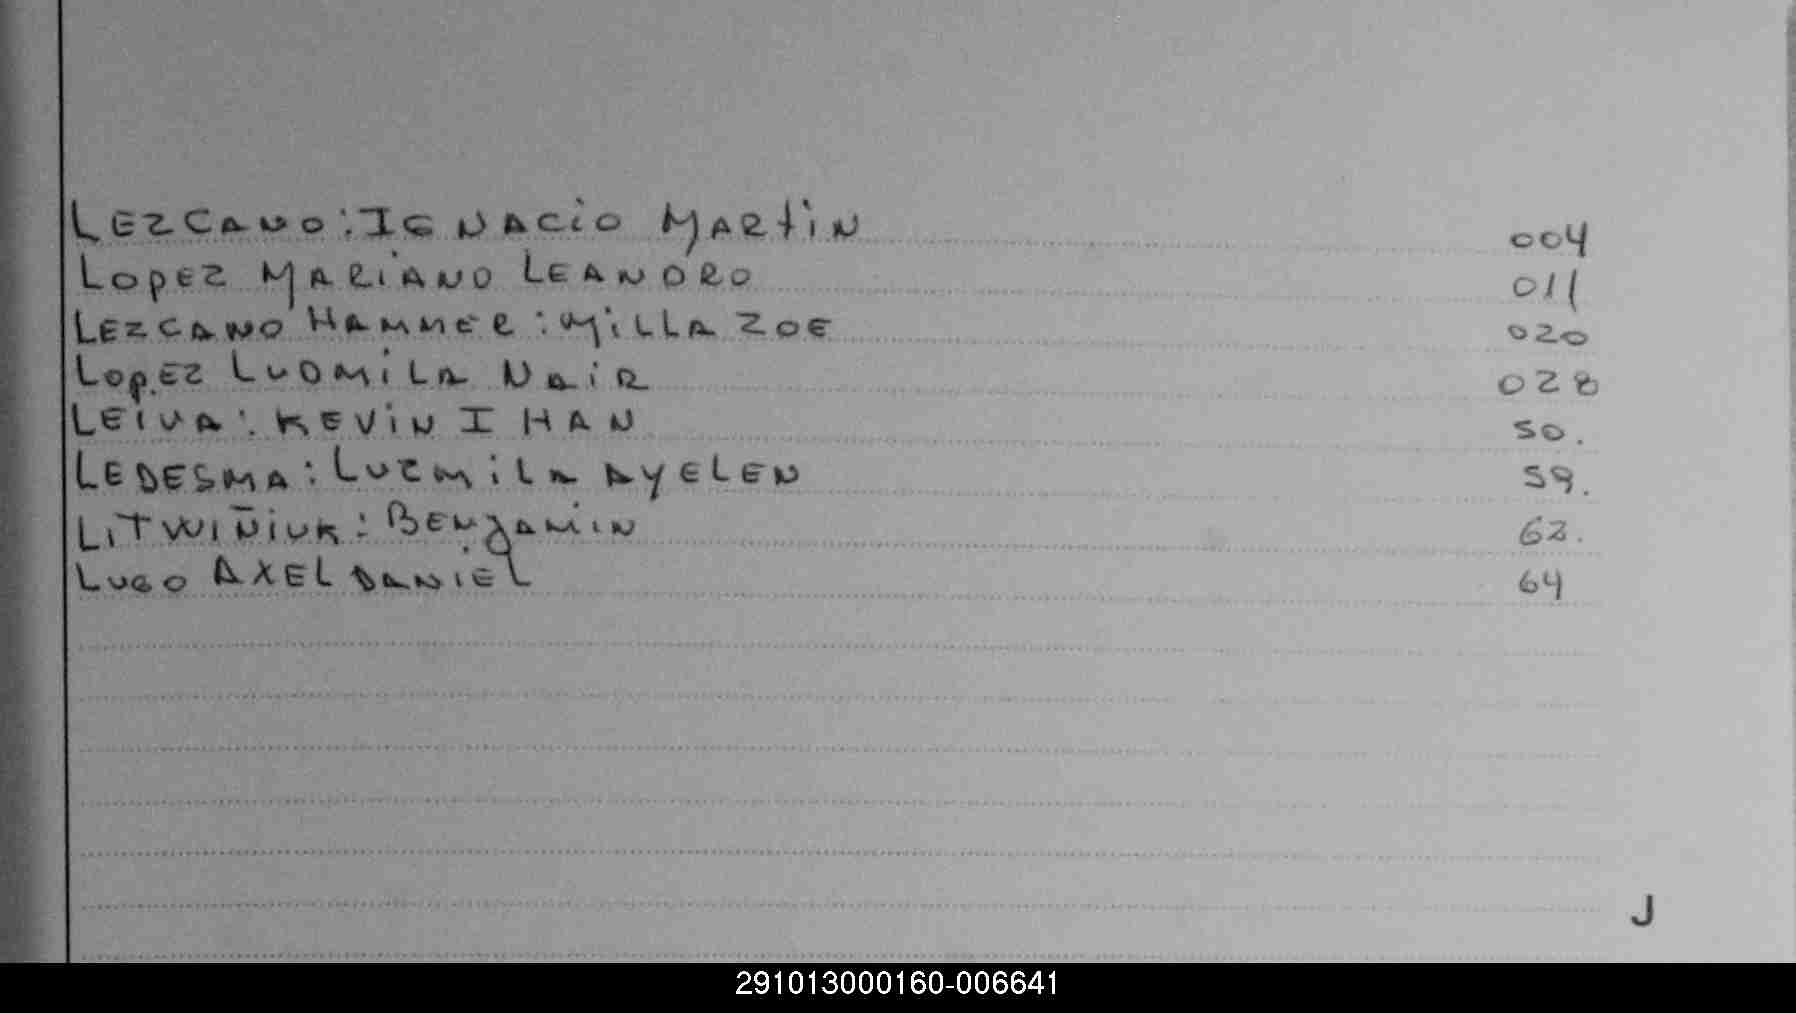 LEZCANO: IGNACIO MARTIN 004
LOPEZ MARIANO LEANDRO 011
LEZCANO HAMMER: MILLA ZOE 020
LOPEZ LUDMILA NAIR 028
LEIVA: KEVIN IHAN 50.
LEDESMA: LUZMILA AYELEN 59.
LITWIÑIUK: BENJAMIN 62.
LUGO AXEL DANIEL 64
J
291013000160-006641